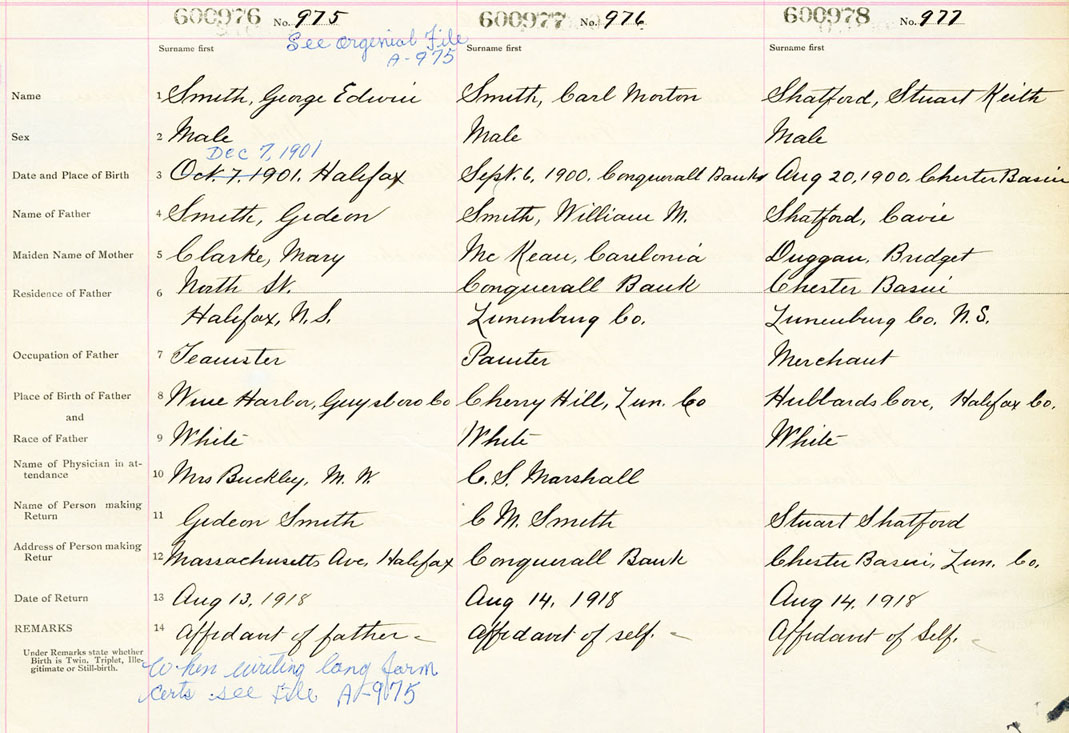 600976 No. 975 600977 No. 976 600978 No. 977
See orgenial File
A-975
Surname first Surname first Surname first
Name 1 Smith, George Edwin Smith, Carl Morton Shatford, Stuart Keith
Sex 2 Male Male Male
Dec 7, 1901
Date and Place of Birth 3 Oct. 7. 1901. Halifax Sept. 6, 1900, Conquerall Banks Aug 20, 1900, Chester Basin
Name of Father 4 Smith, Gideon Smith, William M. Shatford, Cavie
Maiden Name of Mother 5 Clarke, Mary Mc Kean, Duggan, Bridget
Residence of Father 6 North St. Conquerall Bank Chester Basin
Halifax, N.S. Lunenburg Co. Lunenburg Co. N.S.
Occupation of Father 7 Teamster Painter Merchant
Place of Birth of Father 8 Wine Harbor, Guysboro Co Cherry Hill, Lun. Co Hubbards Cove, Halifax Co.
and
Race of Father 9 White White White
Name of Physician in at-
tendance 10 Mrs Buckley, M. W. C. S. Marshall
Name of Person making
Return 11 Gideon Smith C M. Smith Stuart Shatford
Address of Person making
Retur 12 Massachusetts Ave, Halifax Conquerall Bank Chester Basin, Lun. Co.
Date of Return 13 Aug 13, 1918 Aug 14, 1918 Aug 14, 1918
REMARKS 14 Affidavit of father Affidavit of self. Affidavit of Self.
Under Remarks state whether
Birth is Twin, Triplet, Ille-
gitimate or Still-birth.
When writing long form
certs see File A-975